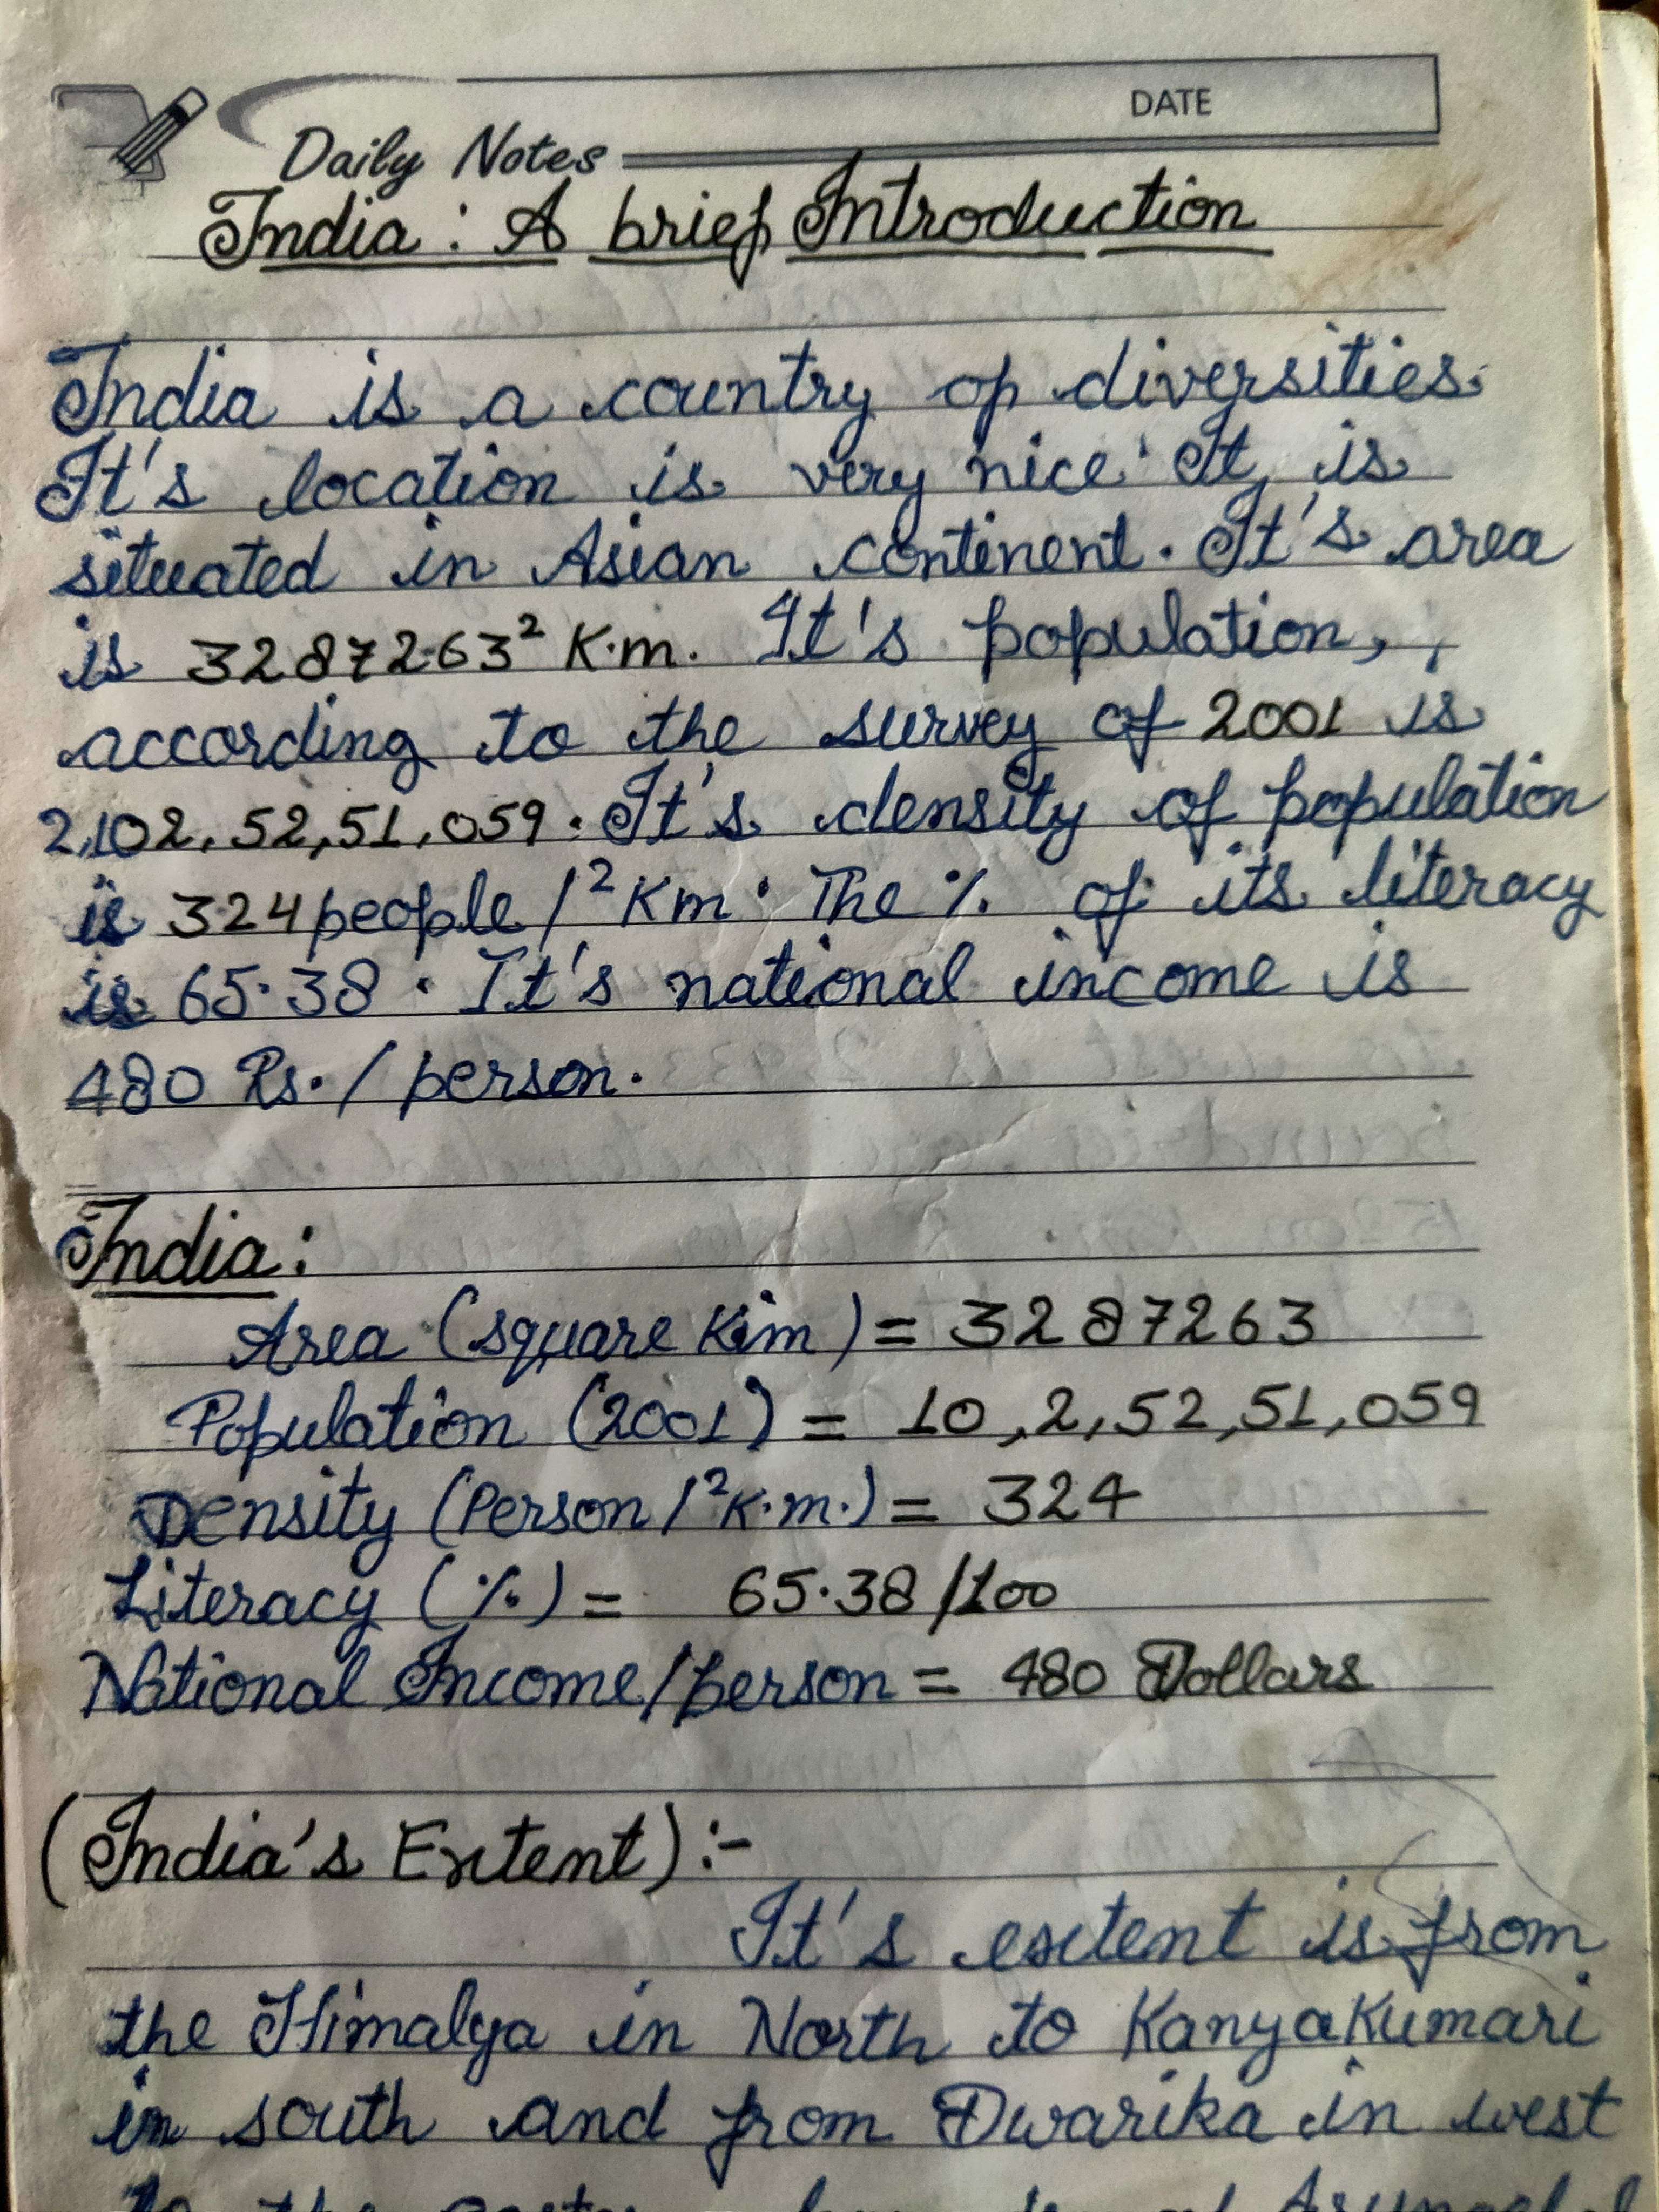 DATE
Daily Notes
India : A brief Introduction
India is a country of diversities.
It's location is very nice. It is
situated in Asian continent. It's area
is 3287263² K.m. It's population,
according to the survey of 2001 is
2,102,52,51,059. It's density of population
is 324 people /²Km. The % of its literacy
is 65.38. It's national income is
480 Rs. / person.
India:
Area (square Kim) = 3287263
Population (2001) = 10,2,52,51,059
Density (Person /²K.m.) = 324
Literacy (%) = 65.38/100
National Income/person = 480 Dollars
(India's Extent) :-
It's extent is from
the Himalya in North to Kanyakumari
in south and from Dwarika in west
to the of